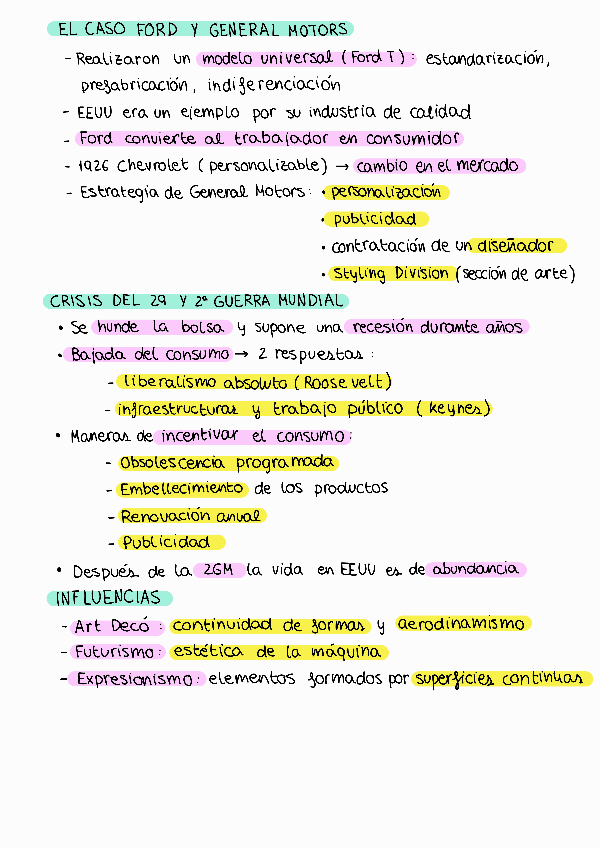 EL CASO FORD Y GENERAL MOTORS
- Realizaron un modelo universal (Ford T): estandarización,
prefabricación, indiferenciación
- EEUU era un ejemplo por su industria de calidad
- Ford convierte al trabajador en consumidor
- 1926 Chevrolet (personalizable) → cambio en el mercado
- Estrategia de General Motors: • personalización
• publicidad
• contratación de un diseñador
• Styling Division (sección de arte)
CRISIS DEL 29 Y 2ª GUERRA MUNDIAL
• Se hunde la bolsa y supone una recesión durante años
• Bajada del consumo → 2 respuestas:
- liberalismo absoluto (Roosevelt)
- infraestructuras y trabajo público (Keynes)
• Maneras de incentivar el consumo:
- Obsolescencia programada
- Embellecimiento de los productos
- Renovación anual
- Publicidad
• Después de la 2GM la vida en EEUU es de abundancia
INFLUENCIAS
- Art Decó: continuidad de formas y aerodinamismo
- Futurismo: estética de la máquina
- Expresionismo: elementos formados por superficies continuas